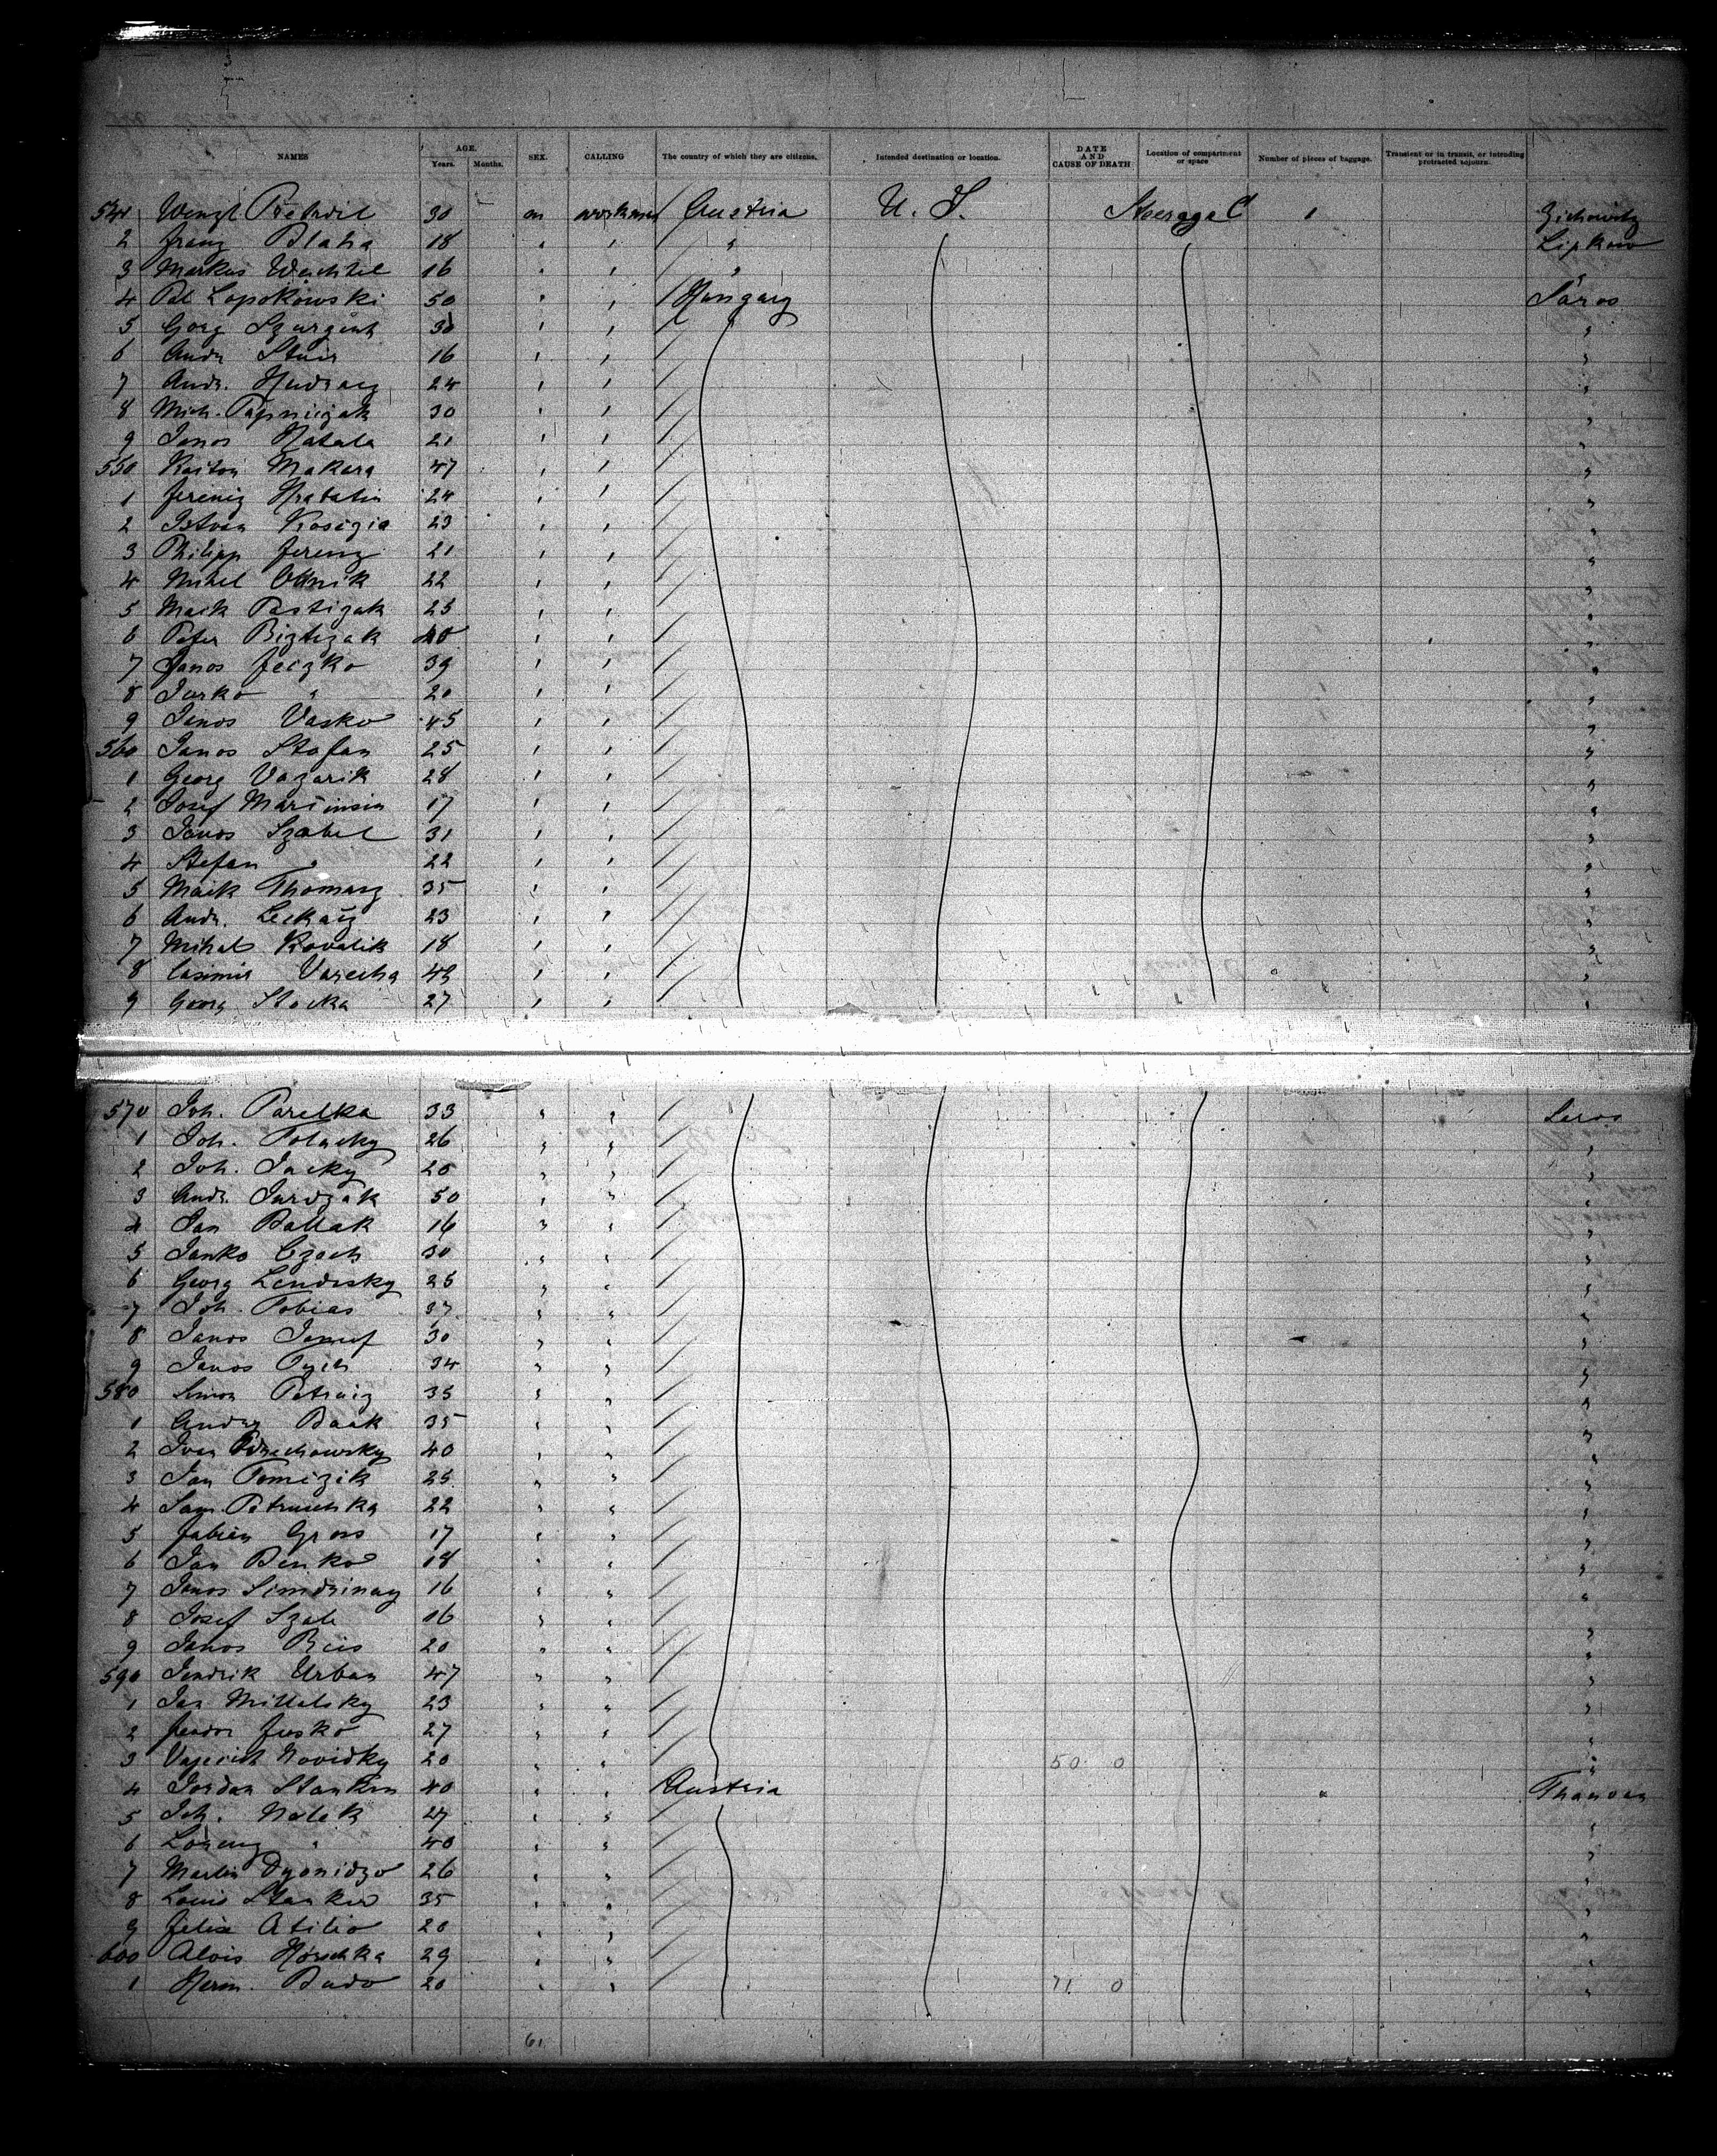 NAMES AGE. Years. Months. SEX. CALLING The country of which they are citizens. Intended destination or location. DATE AND CAUSE OF DEATH Location of compartment or space Number of pieces of baggage. Transient or in transit, or intending protracted sojourn.
541 Wenzl 30 m workman Austria U. S. Steerage C 1 Zichowitz
2 Franz Blaha 18 " " " Lipkow
3 Markus Wachtel 16 " " " "
4 Pal Lopokowski 50 " " Hungary Saros
5 Georg 30 " " "
6 Andr 16 " " "
7 Andr. Hudracz 24 " " "
8 Mich. 30 " " "
9 Janos Hatala 21 " " "
550 Makara 47 " " "
1 Ferencz Hratatin 24 " " "
2 Istvan 23 " " "
3 Philipp Ferenz 21 " " "
4 Mihel 22 " " "
5 Maik Pastizak 25 " " "
6 Peter Biztizak 40 " " "
7 Janos Feczko 39 " " "
8 Jurko " 20 " " "
9 Janos Vasko 45 " " "
560 Janos Stefan 25 " " "
1 Georg Vazarik 28 " " "
2 Josef Marcinsin 17 " " "
3 Janos Szabel 31 " " "
4 Stefan " 22 " " "
5 Maik Thomasz 35 " " "
6 Andr. 23 " " "
7 Mihals Kovalik 18 " " "
8 Casimir Varecha 42 " " "
9 Georg Stocka 27 " " "
570 Joh. Parelka 33 " " Saros
1 Joh. Polacky 26 " " "
2 Joh. Jacky 20 " " "
3 Andr. Jurdzak 50 " " "
4 Jan Ballak 16 " " "
5 Janko Czach 30 " " "
6 Georg Lendesky 25 " " "
7 Joh. Tobias 37 " " "
8 Janos 30 " " "
9 Janos 34 " " "
580 Simon Petraiz 35 " " "
1 Andrz Baak 35 " " "
2 Ivan 40 " " "
3 Jan Tomczik 25 " " "
4 Sam. Petruschka 22 " " "
5 Fabian Gross 17 " " "
6 Jan Benko 18 " " "
7 Janos Simdrinay 16 " " "
8 Josef Szale 16 " " "
9 Janos 20 " " "
590 Jendrik Urban 47 " " "
1 Jan Millalsky 23 " " "
2 Feodor Fusko 27 " " "
3 Novidky 20 " " 50 0 "
4 Jordan Stankin 40 " " Austria " Thanvan
5 Joh. Malek 27 " " "
6 Lorenz " 40 " " "
7 Martin Dyonidzo 26 " " "
8 Louis Stanker 35 " " "
9 Felix Atilio 20 " " "
600 Alois Horschka 29 " " "
1 Herm. Budo 20 " " 71 0 "
61